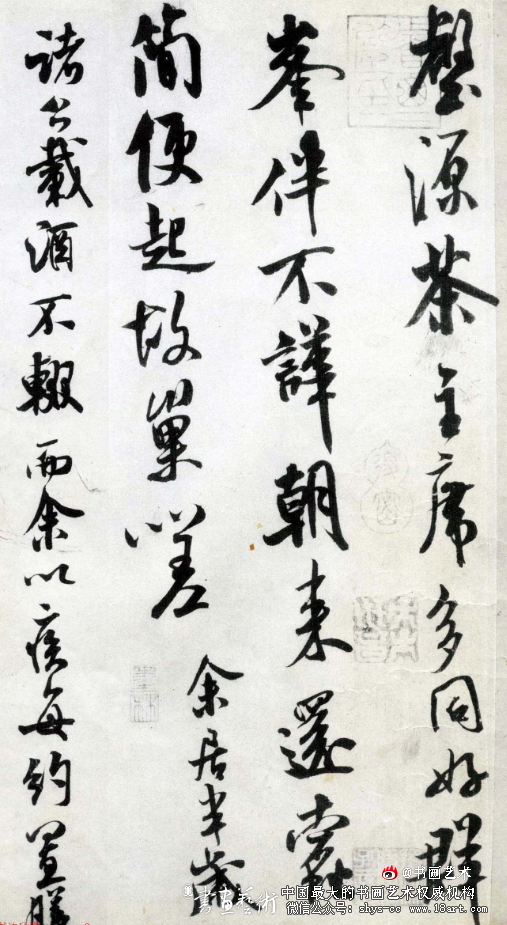 壑源茶主席多同好群
峯伴不譁朝来還蠹
簡便起故巢嗟
余居半歲
諸公載酒不輟而余以疾每約置膳
@书画艺术
書畫藝術
中国最大的书画艺术权威机构
微信公众号：shys-cc www.18art.com